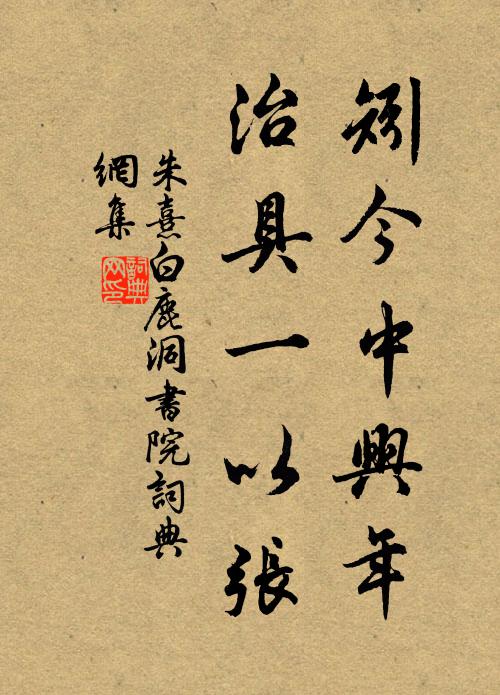 矧今中興年
治具一以張
朱熹白鹿洞書院詞典
網集
詞典
网印